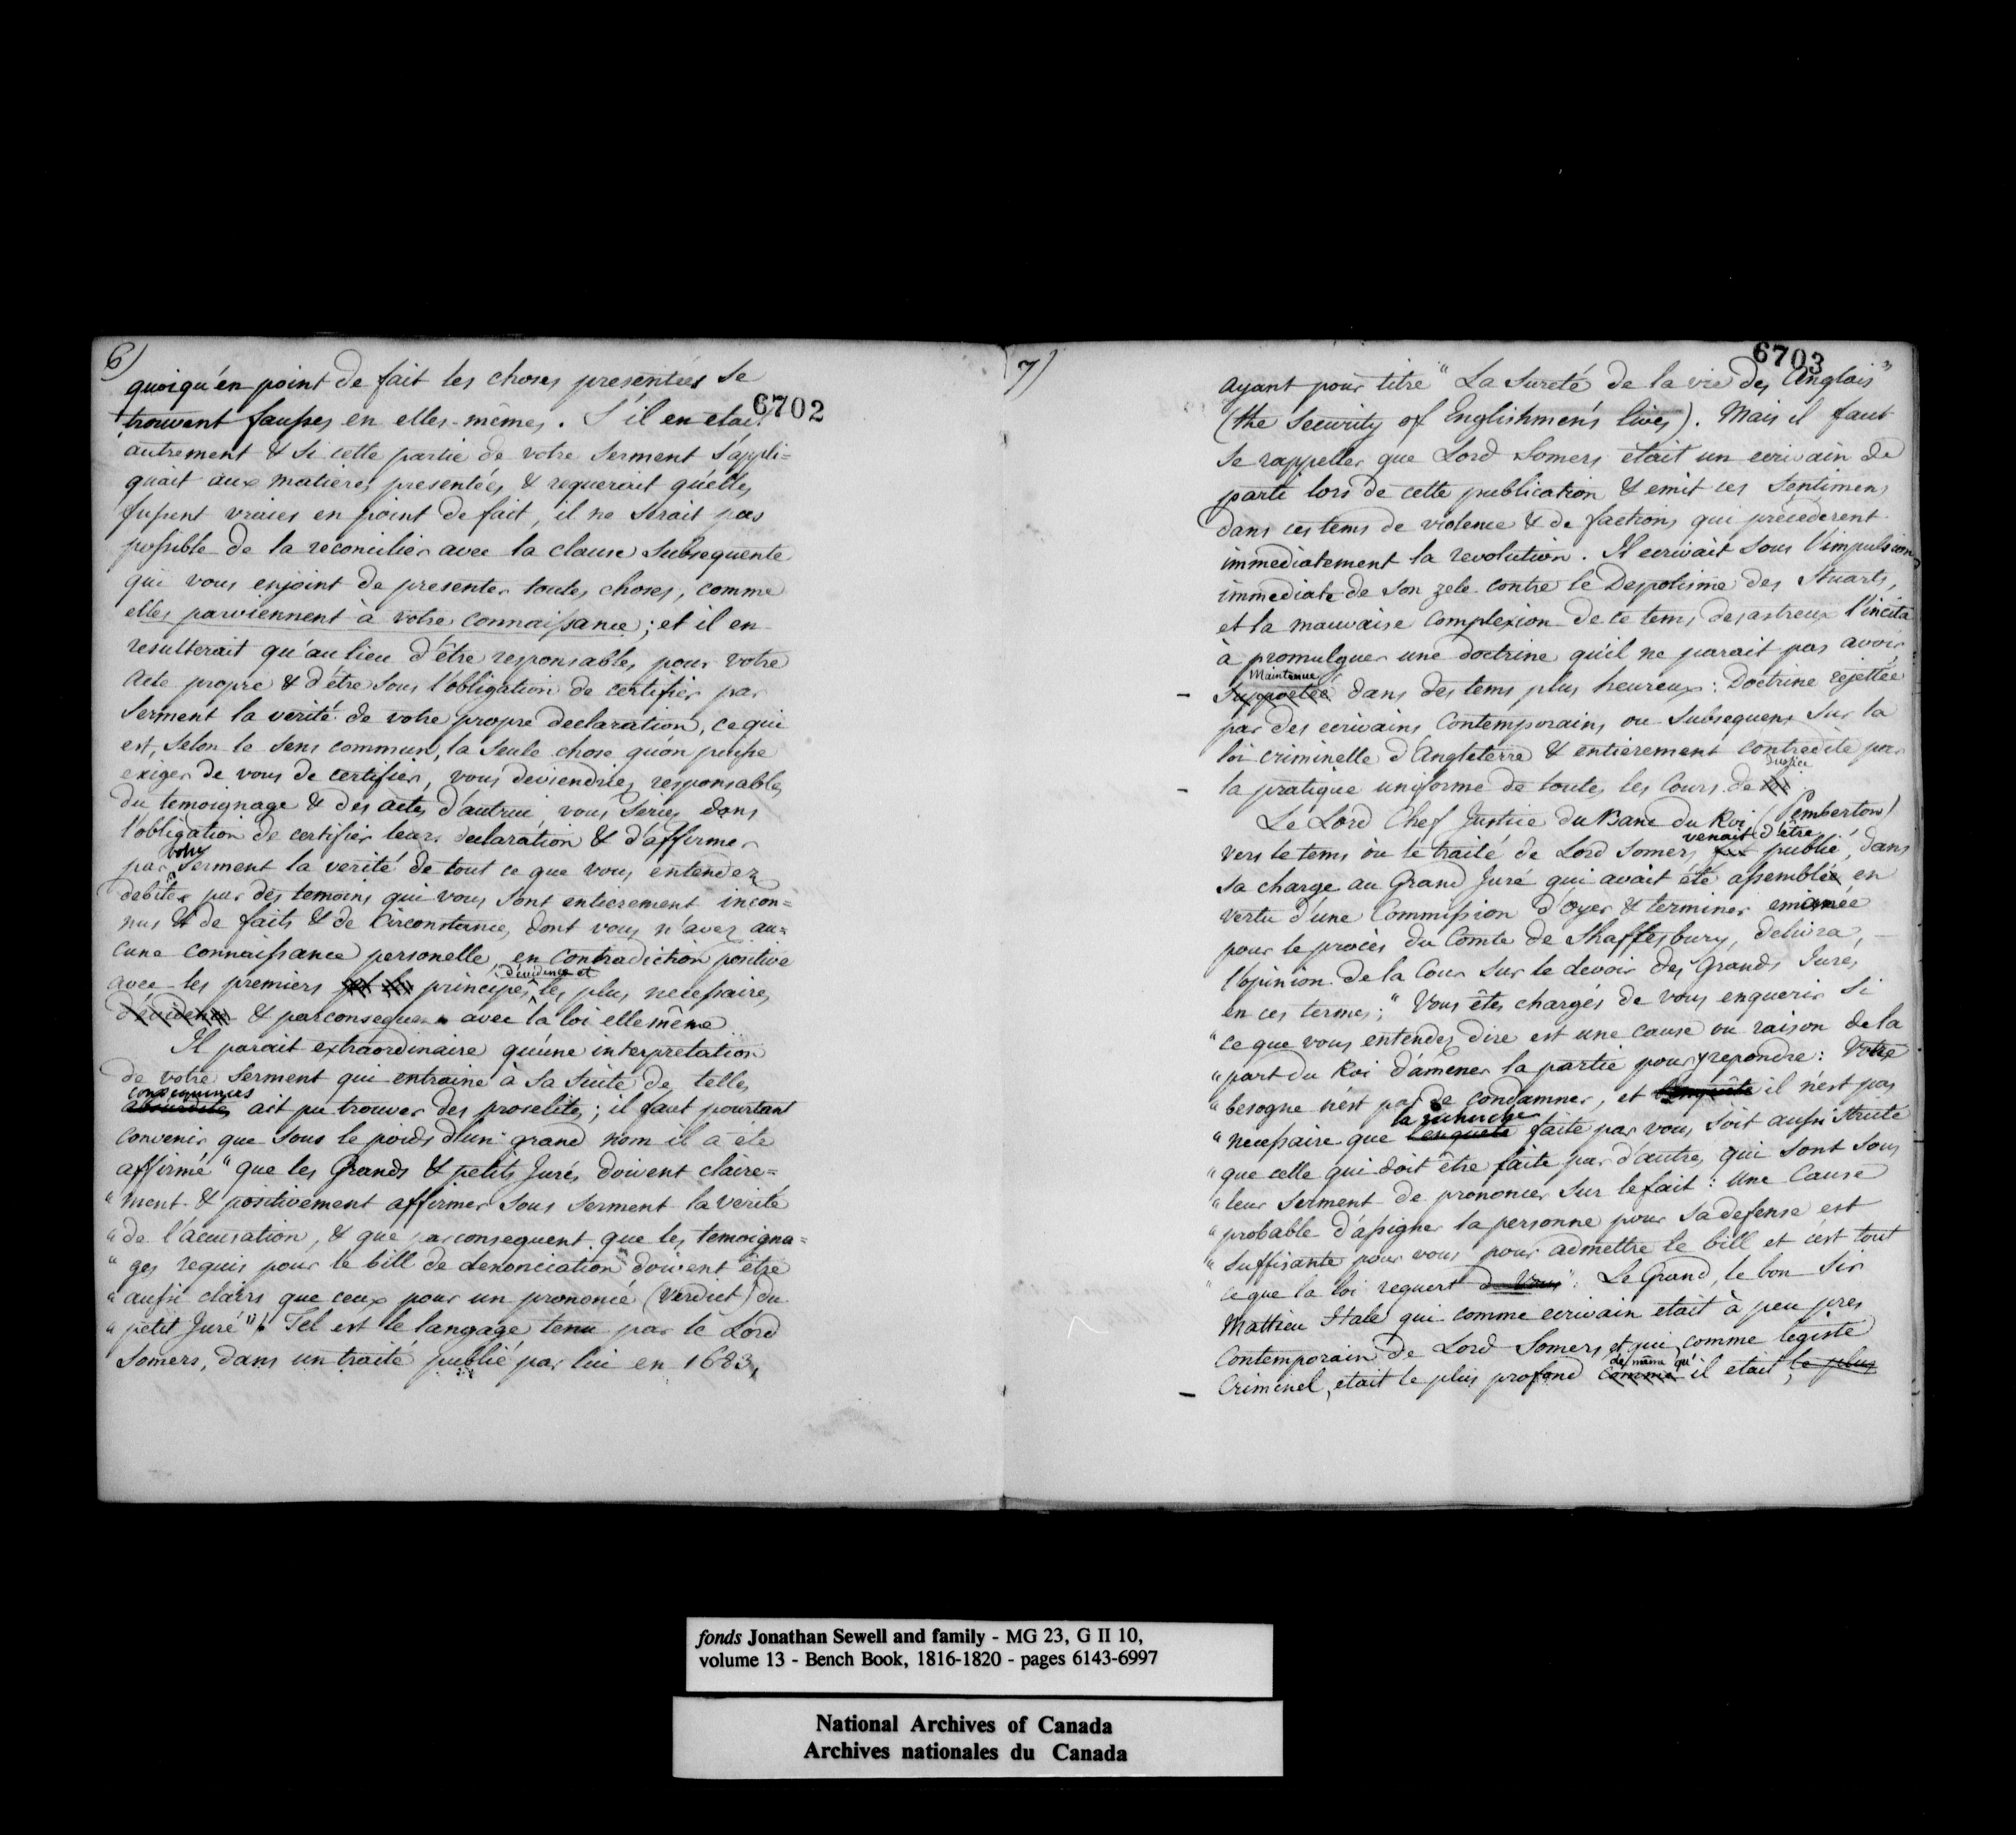 6)
quoiqu'en point de fait les choses presentées se
6702
trouvent fausses en elles-mêmes. S'il en etait
autrement & si cette partie de votre serment s'appli=
quait aux matieres presentées & requerait qu'elles
fussent vraies en point de fait, il ne serait pas
possible de la reconcilier avec la clause subsequente
qui vous enjoint de presenter toutes choses, comme
elles parviennent à votre connaissance; et il en
resulterait qu'au lieu d'être responsables pour votre
acte propre & d'être sous l'obligation de certifier par
serment la verité de votre propre declaration, ce qui
est, selon le sens commun, la seule chose qu'on puisse
exiger de vous de certifier, vous deviendriez responsables
du temoignage & des actes d'autrui, vous seriez dans
l'obligation de certifier leur declaration & d'affirmer
votre
par serment la verité de tout ce que vous entendez
debiter par des temoins qui vous sont entierement incon=
nus & de faits & de circonstances dont vous n'avez au=
cune connaissance personelle, en contradiction positive
d'évidence et
avec les premiers principes les plus necessaires
d'évidence & par consequent avec la loi elle même
Il parait extraordinaire qu'une interpretation
de votre serment qui entraine à sa suite de telles
consequences
absurdités ait pu trouver des proselites; il faut pourtant
convenir que sous le poids d'un grand nom il a été
affirmé "que les Grands & petits Jurés doivent claire=
"ment & positivement affirmer sous serment la verité
"de l'accusation, & que par consequent que les temoigna=
"ges requis pour le bill de denonciation doivent être
"aussi clairs que ceux pour un prononcé (verdict) du
"petit Juré". Tel est le langage tenu par le Lord
Somers, dans un traité publié par lui en 1683,
7)
6703
ayant pour titre "La Sureté de la vie des Anglais"
(the Security of Englishmen's lives). Mais il faut
se rappeller que Lord Somers était un ecrivain de
parti lors de cette publication & emit ces sentimens
dans ces tems de violence & de factions qui précéderent
immediatement la revolution. Il ecrivait sous l'impulsion
immediate de son zele contre le Despotisme des Stuarts,
et la mauvaise complexion de ce tems desastreux l'incita
à promulguer une doctrine qu'il ne parait pas avoir
Maintenue
- Supportée dans des tems plus heureux: Doctrine rejettée
par des ecrivains contemporains ou subsequens sur la
loi criminelle d'Angleterre & entierement contredite par
Justice
- la pratique uniforme de toutes les Cours de
Le Lord Chef Justice du Banc du Roi (Pemberton)
venait d'être
vers le tems où le traité de Lord Somers fut publié, dans
sa charge au Grand Juré qui avait été assemblée en
vertu d'une Commission d'Oyer & terminer emanée
pour le procès du Comte de Shaftesbury, delivra,
l'opinion de la Cour sur le devoir des Grands Jurés
en ces termes; "Vous êtes chargés de vous enquerir si
"ce que vous entendez dire est une cause ou raison de la
"part du Roi d'amener la partie pour y repondre: Votre
"besogne n'est pas de condamner, et l'enquête il n'est pas
la recherche
"necessaire que l'enquete faite par vous soit aussi stricte
"que celle qui doit être faite par d'autres qui sont sous
"leur serment de prononcer sur le fait: Une Cause
"probable d'assigner la personne pour sa defense est
"suffisante pour vous pour admettre le bill et c'est tout
"ce que la loi requert de vous": Le Grand, le bon Sir
Mathieu Hale qui comme ecrivain etait à peu pres
Contemporain de Lord Somers et qui, comme legiste
de même qu'
- Criminel, etait le plus profond comme il etait, le plus
fonds Jonathan Sewell and family - MG 23, G II 10,
volume 13 - Bench Book, 1816-1820 - pages 6143-6997
National Archives of Canada
Archives nationales du Canada